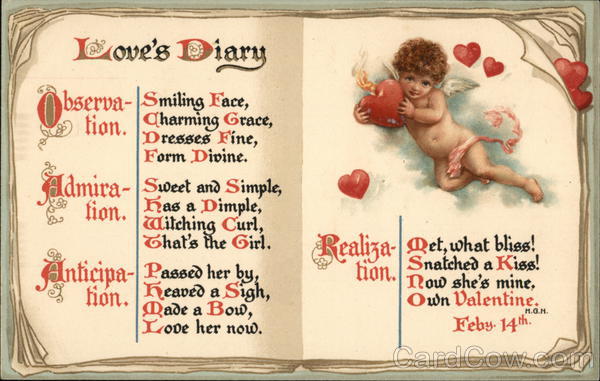 Love's Diary
Observa-
tion.
Smiling Face,
Charming Grace,
Dresses Fine,
Form Divine.
Admira-
tion.
Sweet and Simple,
Has a Dimple,
Witching Curl,
That's the Girl.
Anticipa-
tion.
Passed her by,
Heaved a Sigh,
Made a Bow,
Love her now.
Realiza-
tion.
Met, what bliss!
Snatched a Kiss!
Now she's mine,
Own Valentine.
H.G.H.
Feby. 14th.
CardCow.com